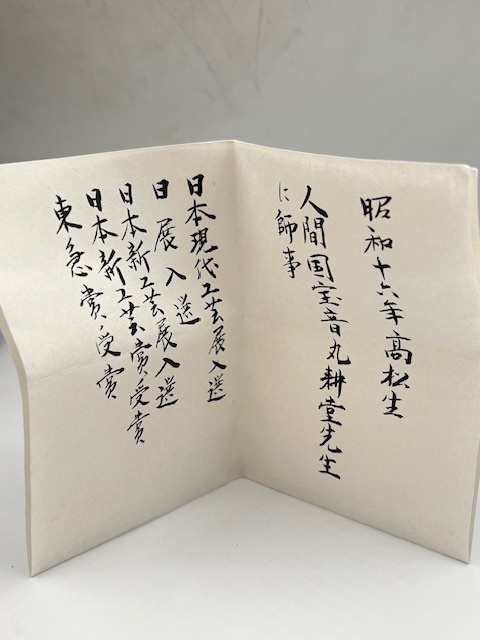 昭和十六年高松生
人間国宝音丸耕堂先生
に師事
日本現代工芸展入選
日展入選
日本新工芸展入選
日本新工芸賞受賞
東急賞受賞